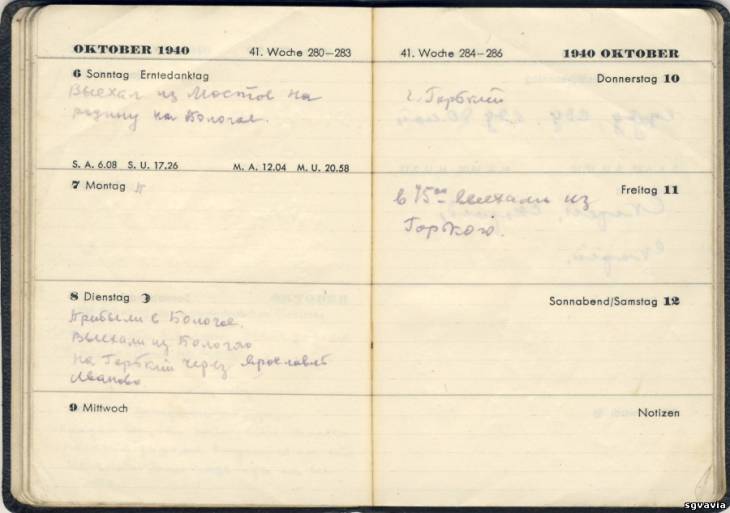 OKTOBER 1940 41. Woche 280–283
6 Sonntag Erntedanktag
Выехал из Мостов на
родину на Бологое.
S. A. 6.08 S. U. 17.26 M. A. 12.04 M. U. 20.58
7 Montag
8 Dienstag
Прибыли в Бологое.
Выехали из Бологое
на Горький через Ярославль
Иваново
9 Mittwoch
41. Woche 284–286 1940 OKTOBER
Donnerstag 10
г. Горький
Freitag 11
в 15⁰⁰ выехали из
Горького.
Sonnabend/Samstag 12
Notizen
sgvavia